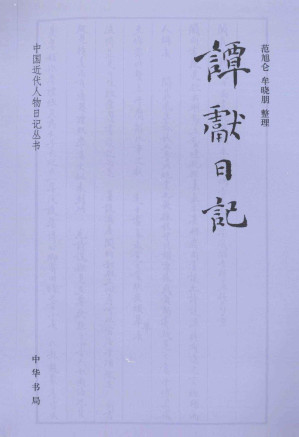 范旭仑 牟晓朋 整理
譚獻日記
中国近代人物日记丛书
中华书局